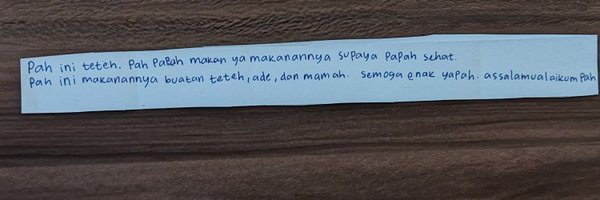 Pah ini teteh. Pah Papah makan ya makanannya supaya papah sehat.
Pah ini makanannya buatan teteh, ade, dan mamah. Semoga enak yapah. assalamualaikum Pah